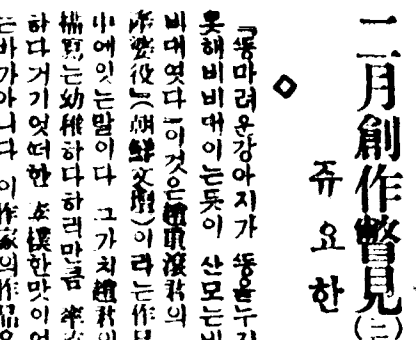 二月創作瞥見(二)
쥬요한
◇
『똥마려운강아지가 똥을누지
못해비비대이는듯이 산모는비
비대엿다』이것은趙重滾君의
(朝鮮文壇)이라는作
小에잇는말이다 그가치趙君의
描寫는幼稚하다하리만큼 率
하다거기엇더한 素樸한맛이
는바가아니다 이作家의作品은